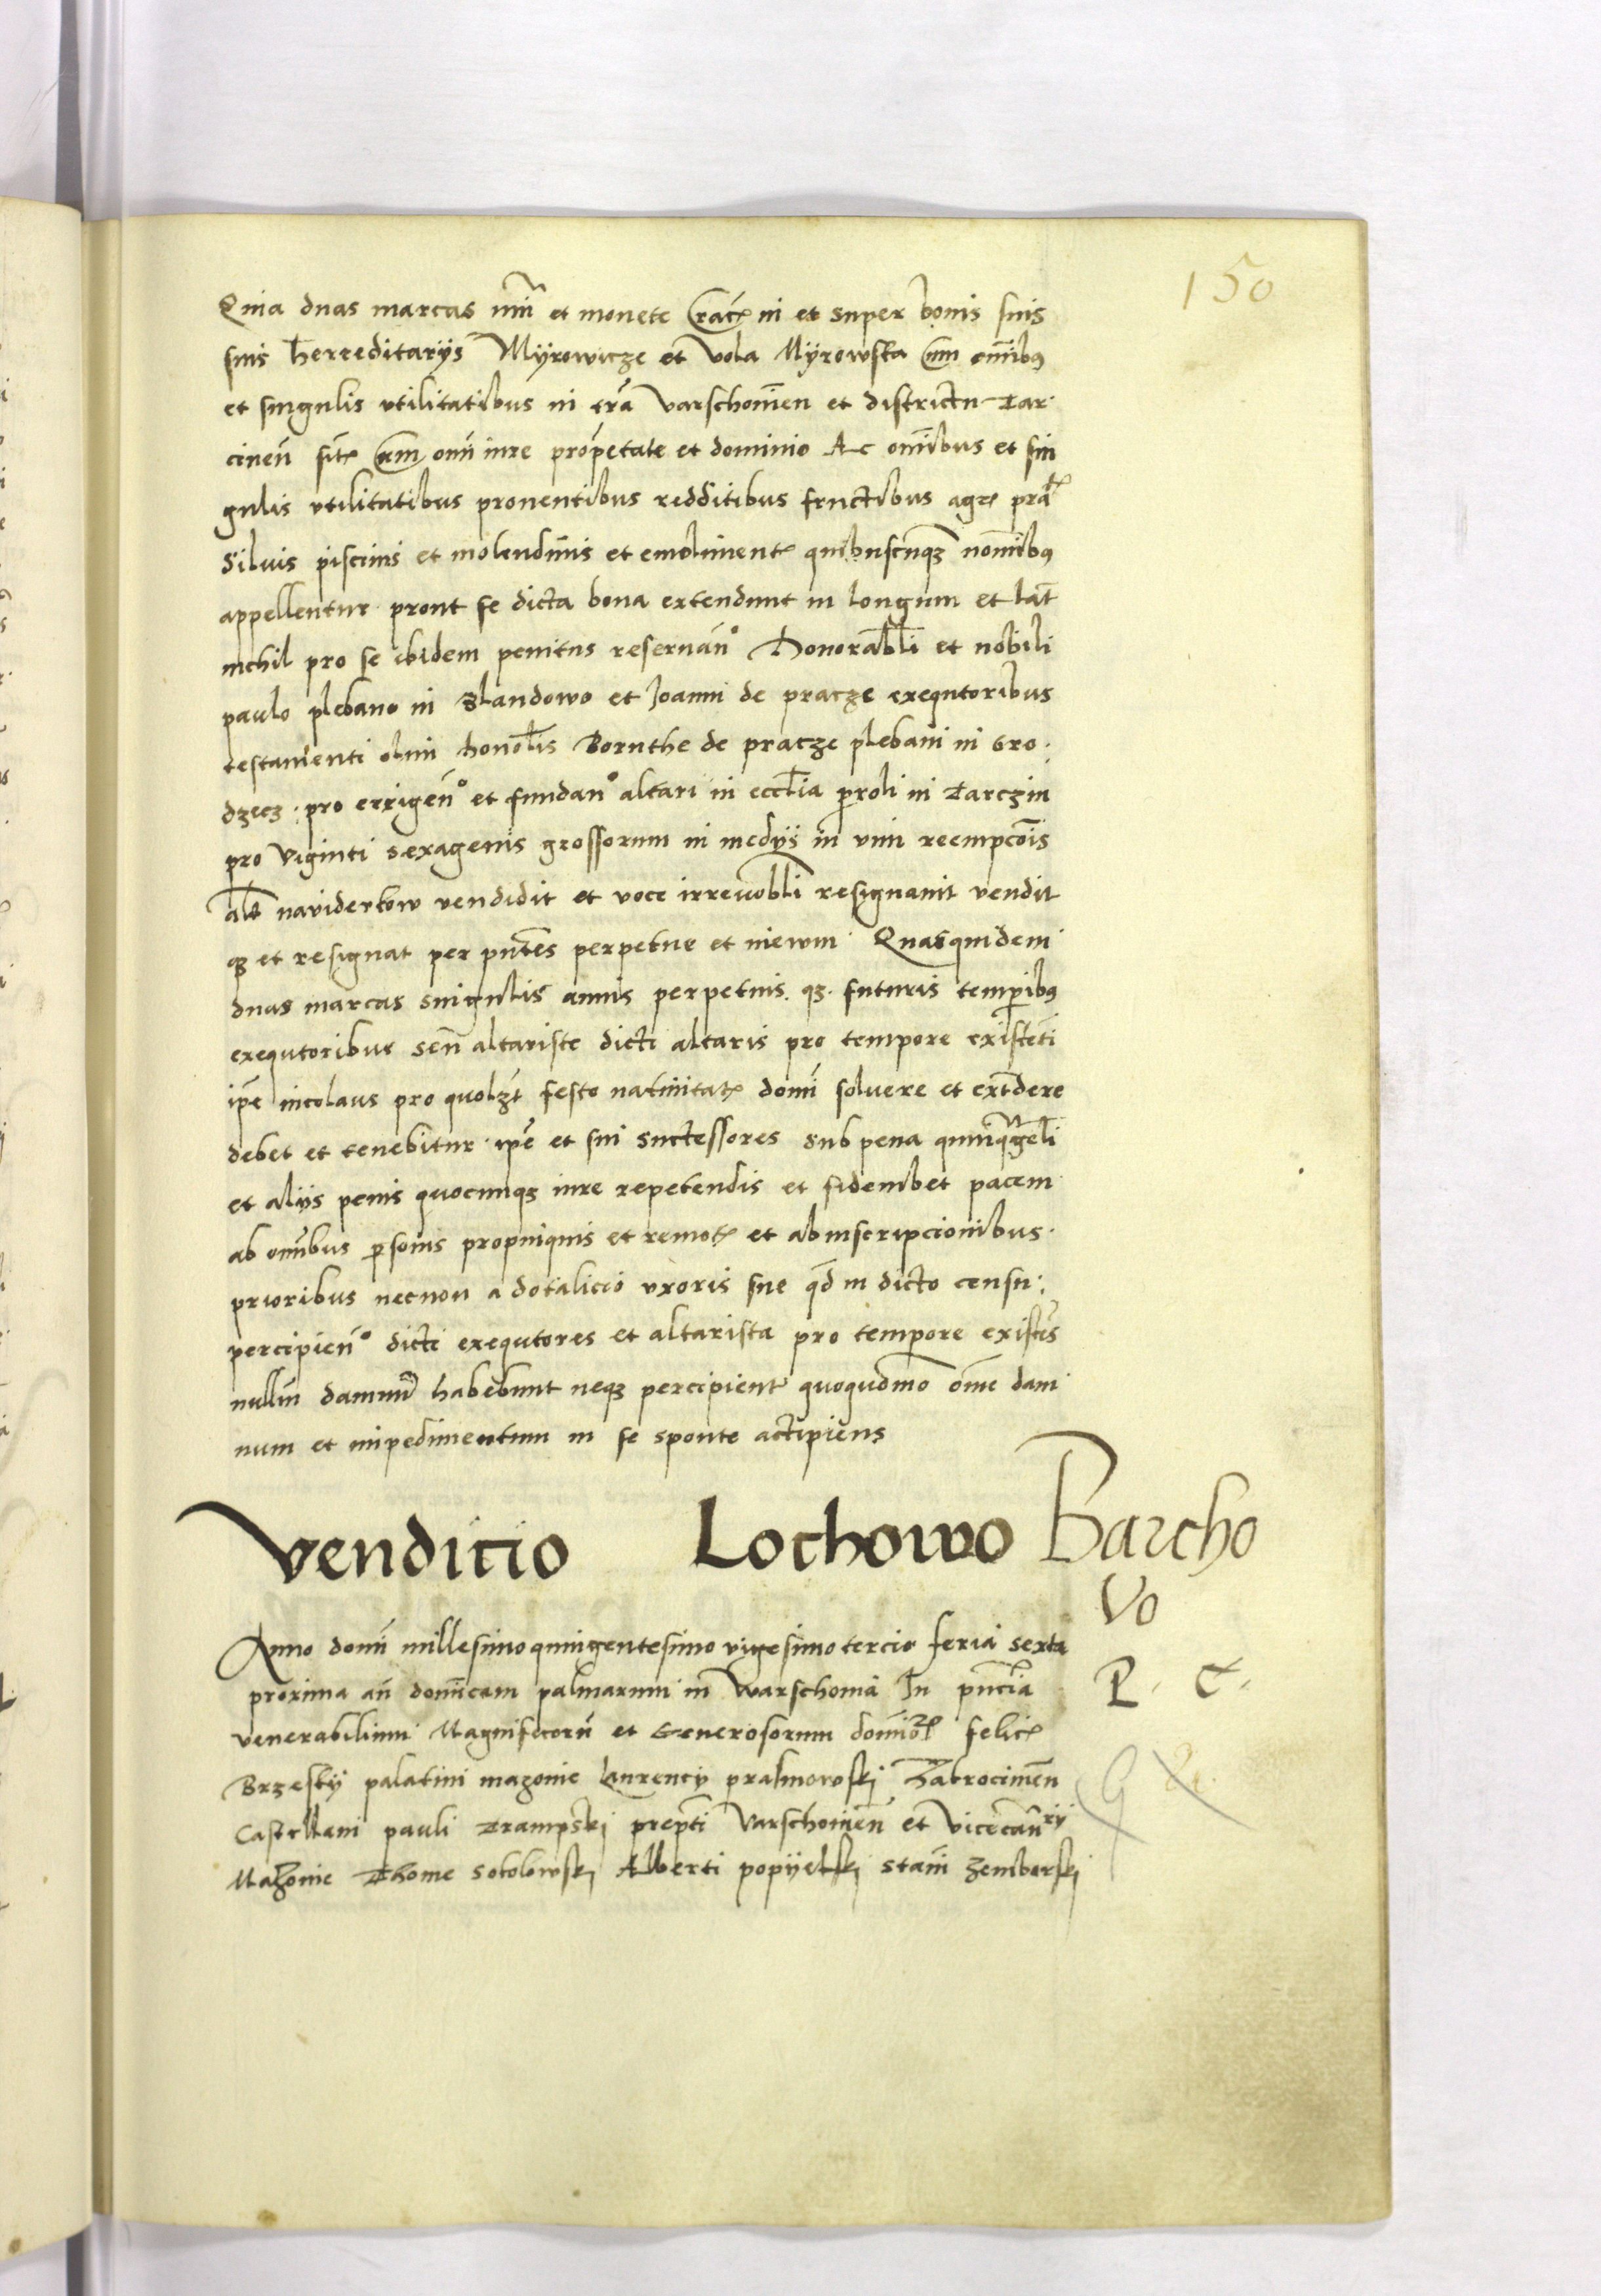 150
Quia duas marcas nūi et monete Cracꝭ in et super bonis suis
suis herreditarijs Myrowicze et Vola Myrowska cum om̄ibus
et singulis vtilitatibus in tr̄a Varschouien̄ et districtu Tar
cinen̄ sitꝭ cum om̄i iure prop̄etate et dominio Ac om̄ibus et sin
gulis vtilitatibus prouentibus redditibus fructibus agrꝭ pratꝭ
Siluis piscinis et molendinis et emolimentꝭ quibuscūqꝫ nom̄ibꝯ
appellentur prout se dicta bona extendunt in longum et lat̄
nichil pro se ibidem penitus reseruan̄o Honorabl̄i et nobili
paulo plebano in Slandowo et Joanni de pracze exequtoribus
testamenti olim honol̄is Boruthe de pracze plebani in Gro
dzecz pro errigen̄o et fundan̄o altari in eccl̄ia ꝑroli in Tarczin
pro Viginti sexagenis grossorum in medijs in vim reempcōis
al̄s naviderkow vendidit et voce irreuobl̄i resignauit vendit
qꝫ et resignat per pn̄tes perpetue et in ewm Quasquidem
duas marcas singulis annis perpetuis qꝫ futuris temporibꝯ
exequtoribus seu altariste dicti altaris pro tempore existen̄ti
ip̄e nicolaus pro quolꝫt festo natiuitatꝭ domī soluere et extdere
debet et tenebitur ip̄e et sui successores sub pena quinqꝫgel̄i
et alijs penis quocunqꝫ iure repetendis et fideiubet pacem
ab om̄ibus ꝑsonis propinquis et remotꝭ et ab inscripcionibus
prioribus necnon a dotalicio vxoris sue qd̄ in dicto censu
percipien̄o dicti exequtores et altarista pro tempore existen̄s
nullū damnū habebunt neqꝫ percipient quoqudmo om̄e dam
num et impedimentum in se sponte accipiens
Venditio Lochowo Barcho
Vo
P. C.
Anno domī millesimo quingentesimo vigesimo tercio feria sexta
proxima an̄ domīcam palmarum in Warschouia In pn̄cia
venerabilium Magnificorū et Generosorum domīorꝭ felicꝭ
Brzesky palatini mazouie laurencij prasmowskj Zakrocimen̄
Castellani pauli Trampskj prepti Varschouien̄ et Vicecan̄rij
Mazouie Thome Sokolowskj Alberti popyelskj stanī Zemborskj